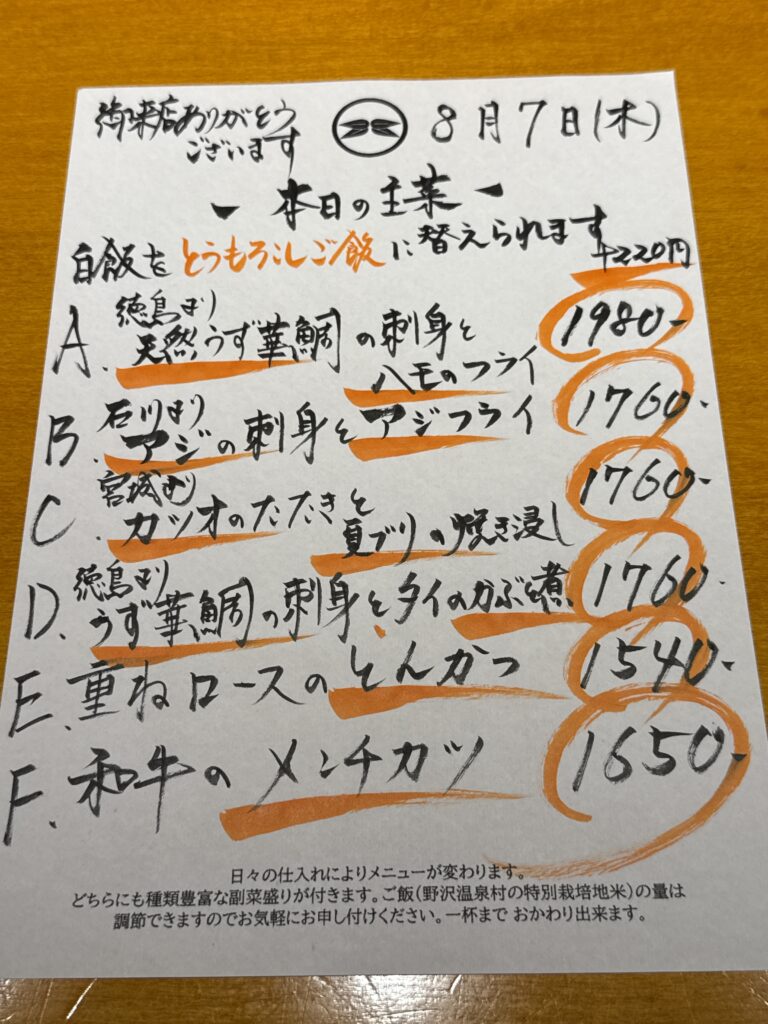 御来店ありがとう
ございます
8月7日(木)
本日の主菜
白飯をとうもろこしご飯に替えられます
+220円
徳島より
A. 天然うず華鯛の刺身と
ハモのフライ 1980-
石川より
B. アジの刺身とアジフライ 1760-
宮城より
C. カツオのたたきと
夏ブリの焼き浸し 1760-
徳島より
D. うず華鯛の刺身と、タイのかぶと煮 1760-
E. 重ねロースのとんかつ 1540-
F. 和牛のメンチカツ 1650-
日々の仕入れによりメニューが変わります。
どちらにも種類豊富な副菜盛りが付きます。ご飯(野沢温泉村の特別栽培地米)の量は
調節できますのでお気軽にお申し付けください。一杯まで おかわり出来ます。